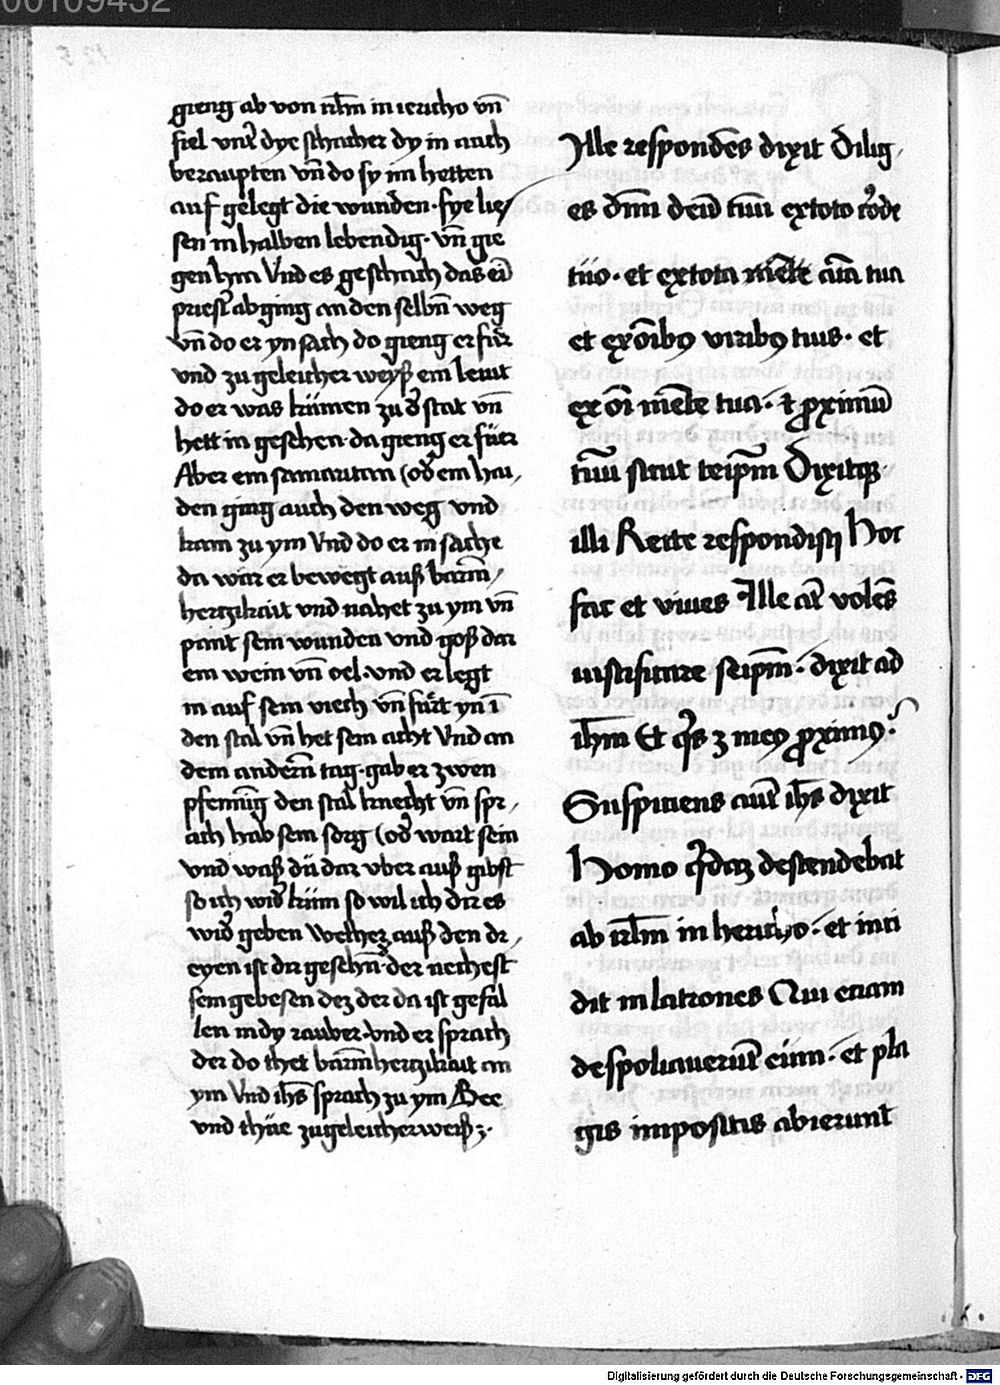 00109432
gieng ab von irl̄m in iericho vn̄
fiel vnt̄ dye schacher dy in auch
beraupten vn̄ do sy im hetten
auf gelegt die wunden · sye lie/
sen in halben lebendig · vn̄ gie
gen hin Vnd es geschach das ei̅
priest̄ ab ging an den selbn̄ weg
vn̄ do er yn sach do gieng er für
vnd zu geleicher weyß ein leuit
do er was kümen zu d̄ stat vn̄
hett in gesehen · da gieng er füer
Aber ein samaritan (od̄ ein hai,
den ging auch den weg vnd
kam zu ym Vnd do er in sache
da war er bewegt auß barm̄/
hertzikait vnd nahet zu ym vn̄
pant sein wunden vnd goß dar
ein wein vn̄ oel · vnd er legt
in auf sein viech vn̄ fürt yn ī
den stal vn̄ het sein acht Vnd an
dem andern̄ tag · gab er zwen
pfennīg den stal knecht vn̄ spr,
ach hab sein sorg (od̄ wart sein
vnd waß dü dar vber auß gibst
so ich wid̄ küm so wil ich dir es
wid̄ geben Welcher auß den dr,
eyen ist da gesehn̄ · der nechest
sein gebesen dez der da ist gefal
len in dy rauber · vnd er sprach
der do thet barm̄hertzikait an
ym Vnd ih̄s sprach zu ym Gee
vnd thüe zugeleicherweiß ⁊ ·
Ille respondēs dixit Dilig,
es dn̄m deū tuū ex toto corde
tuo · et ex tota aīa tua
et ex oīb⁹ virib⁹ tuis · et
ex oī mēte tua · ⁊ proximū
tuū sicut teip̄m Dixitq̄
illi Recte respondisti Hoc
fac et viues Ille aūt volēs
iustificare seip̄m · dixit ad
ih̄m Et q̄s ⁊ me⁹ proxim⁹?
Suspiciens aūt ih̄s dixit
Homo q̄daz descendebat
ab irl̄m in hericho · et inci
dit in latrones Qui eciam
despoliauerūt eūm · et pla
gis impositis abierunt
Digitalisierung gefördert durch die Deutsche Forschungsgemeinschaft - DFG